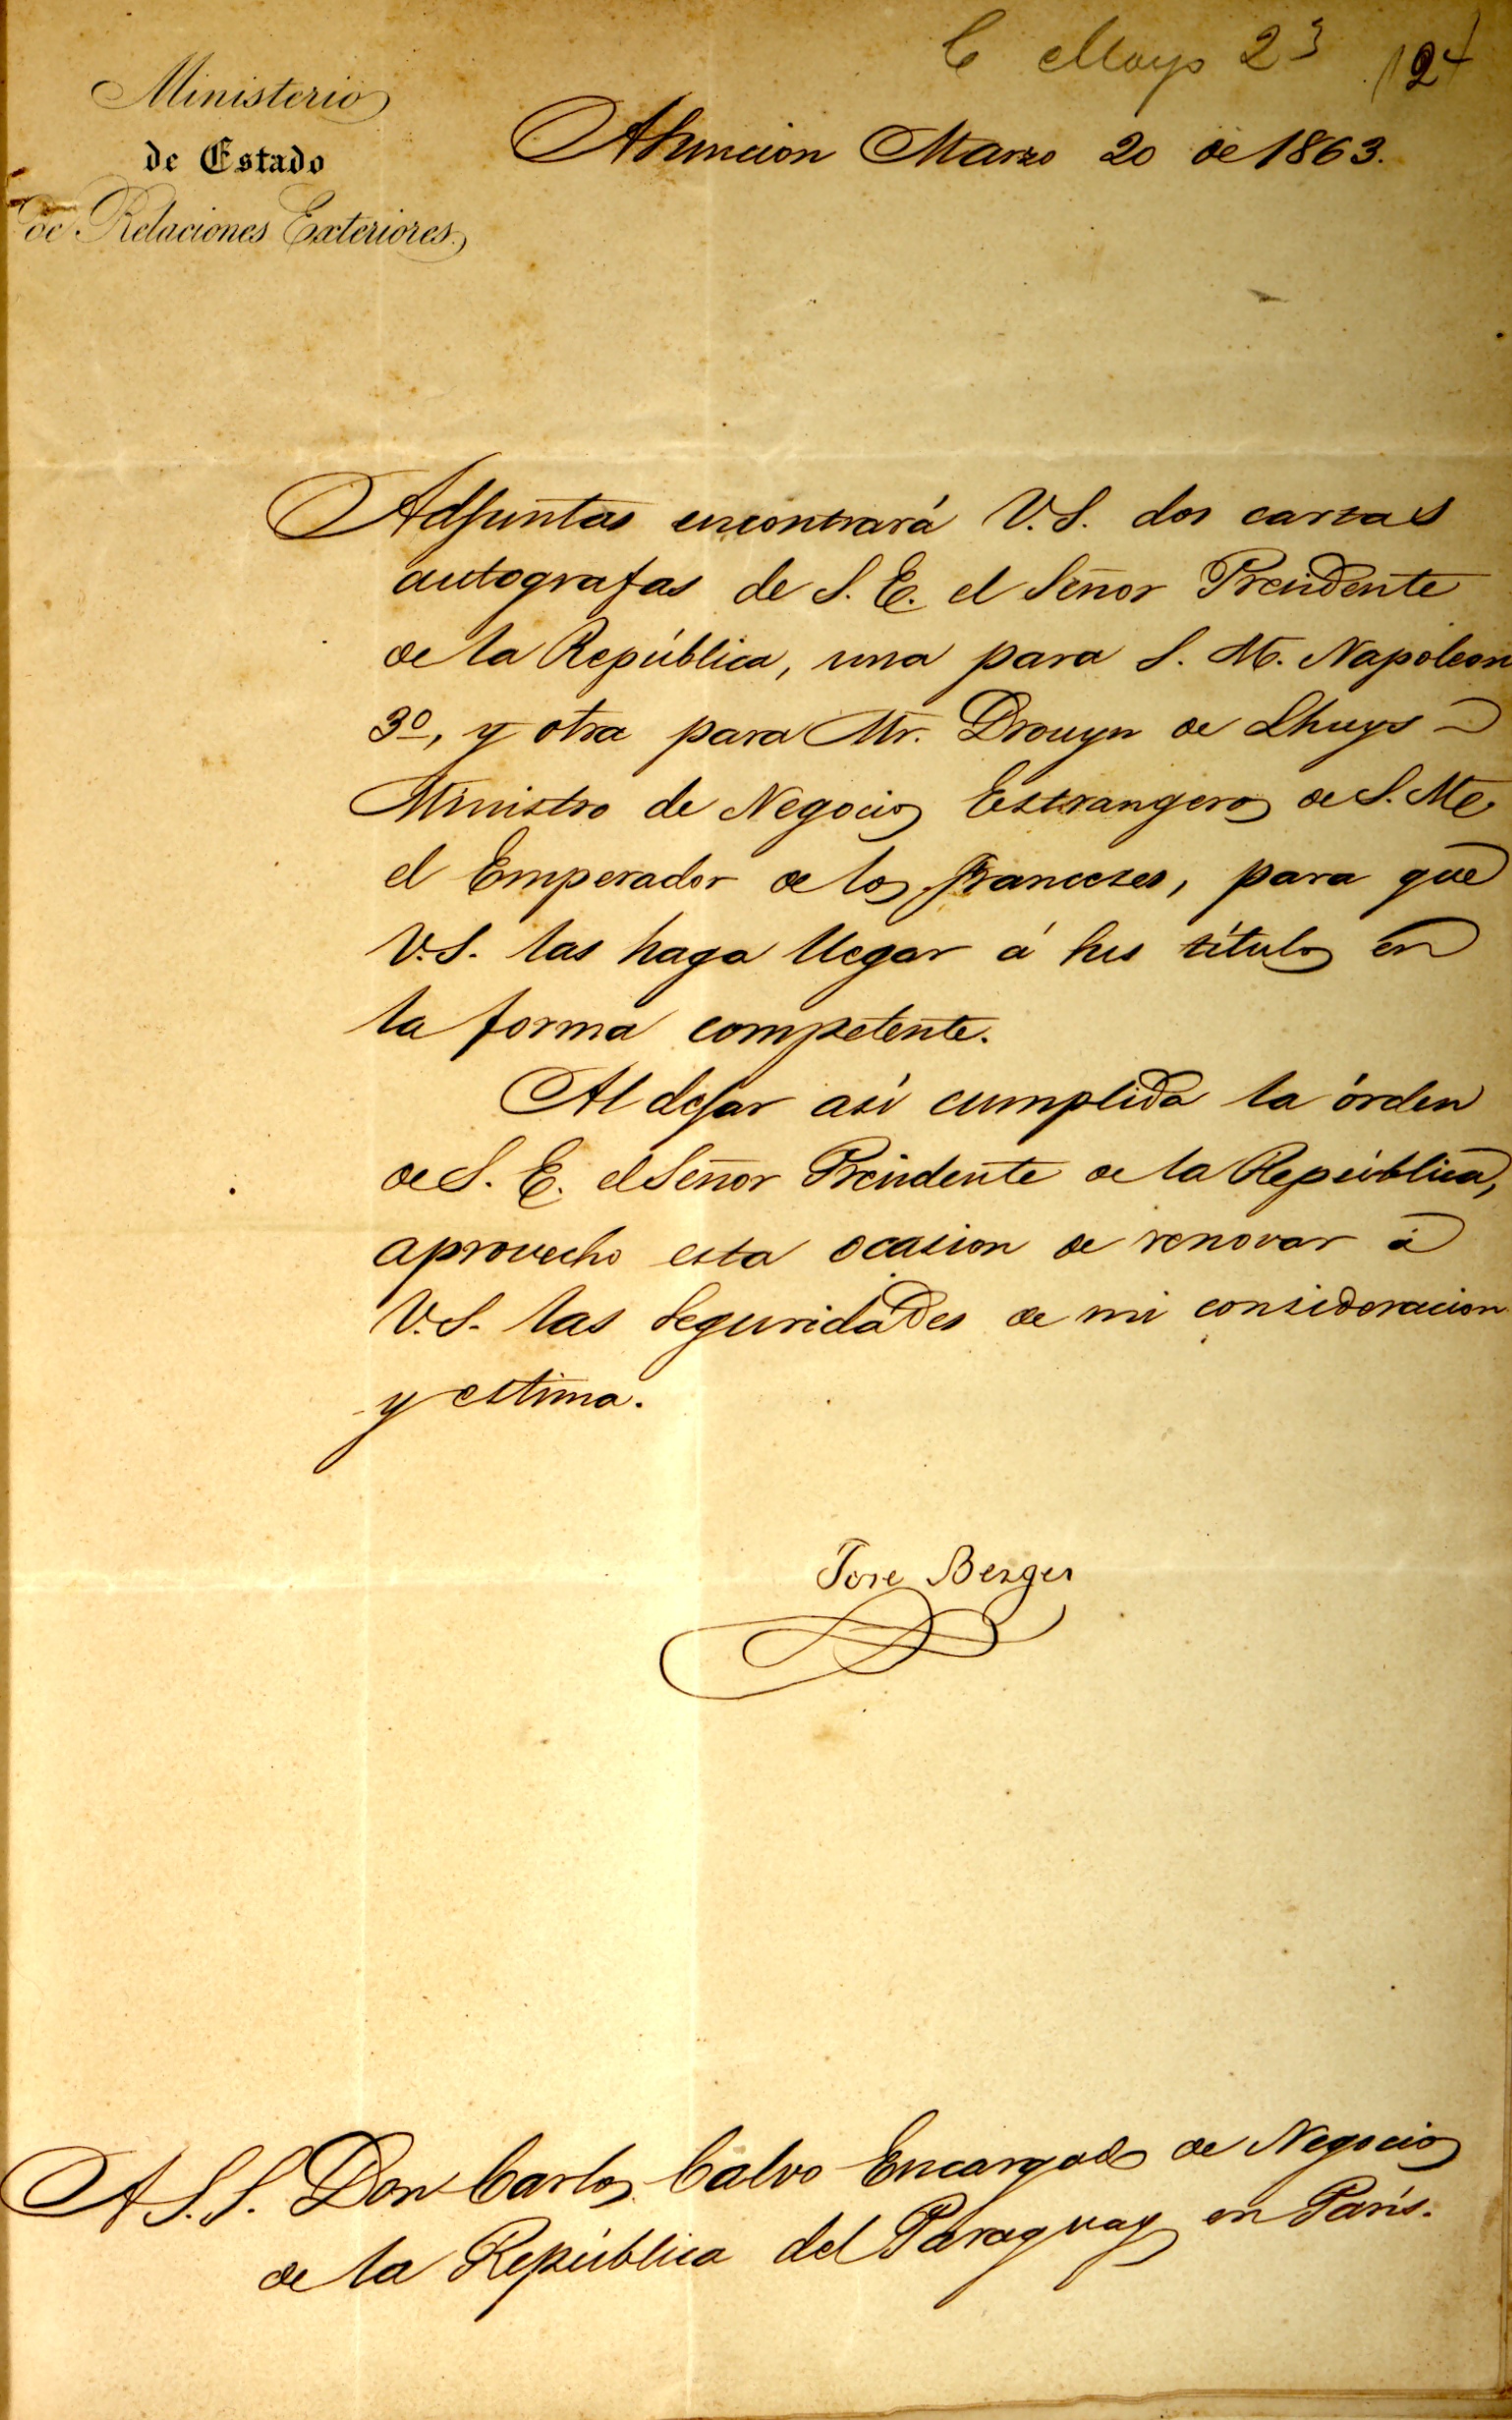 C Mayo 23
124
Ministerio
de Estado
de Relaciones Exteriores.
Asuncion Marzo 20 de 1863.
Adjuntas encontrará V.S. dos cartas
autografas de S. E. el Señor Presidente
de la República, una para S. M. Napoleon
3º, y otra para Mr. Drouyn de Lhuys
Ministro de Negocios Estrangeros de S. M.
el Emperador de los franceses, para que
V.S. las haga llegar á sus títulos en
la forma competente.
Al dejar así cumplida la órden
de S. E. el Señor Presidente de la República,
aprovecho esta ocasion de renovar á
V.S. las seguridades de mi consideracion
y estima.
Jose Berges
A S.S. Don Carlos Calvo Encargado de Negocios
de la República del Paraguay en París.